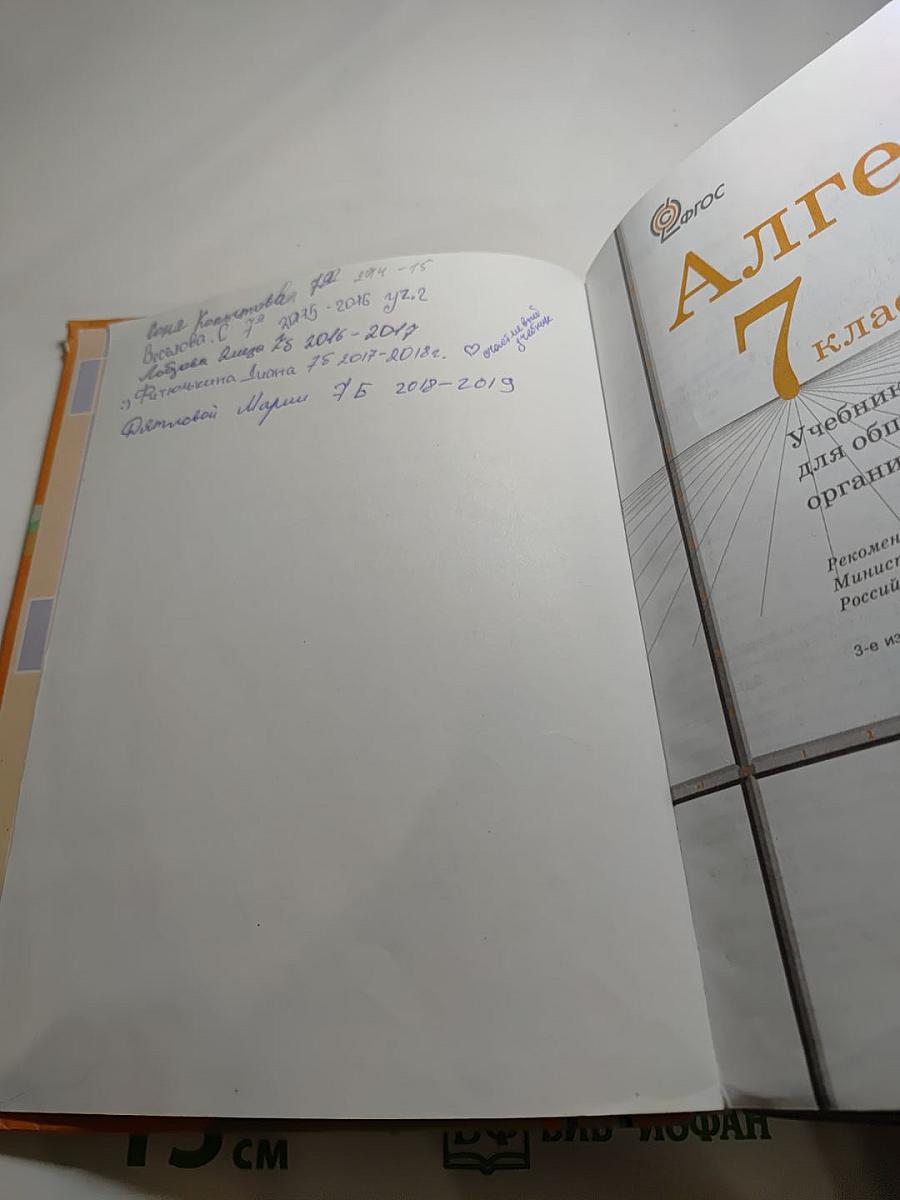 Соня Капустова 7А 2014-15
Веселова.С 7а 2015-2016 уч.г
Лобзова Лиза 7б 2016-2017
:) Фитюнькина Диана 7Б 2017-2018г. ♡ счастливый учебник
Дятловой Марии 7Б 2018-2019
ФГОС
Алге
7 клас
Учебник
для общ
органи
Рекомен
Минист
Россий
3-е из
15 см
БИБ ИОФАН